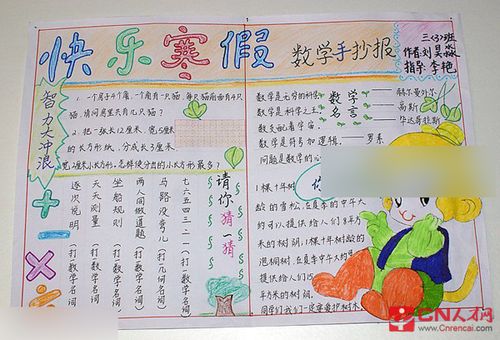 快乐寒假
数学手抄报
三(3)班
作者:刘昊淼
指导:李艳
智力大冲浪
1.一个房子4个角,一个角有一只猫,每只猫前面有4只
猫,请问房里共有几只猫?
2.把一张长12厘米,宽5厘米
的长方形纸,分成长3厘米,
宽2厘米小长方形,怎样使分出的小长方形最多?
请你猜一猜
七六五四三二一(打一数学名词)
马路没弯儿(打几何名词)
两人同做道题(打一数学名词)
坐船规则(打一数学名词)
天天测量(打一数学名词)
逐次说明(打一数学名词)
数学名言
数学是无穷的科学 赫尔曼外尔
数学是科学之王 高斯
数支配着宇宙 毕达哥拉斯
数学是符号加逻辑 罗素
问题是数学的心
1棵1年树龄
的雪松,在夏季的中午大
约可以提供给人们
米的树荫,1棵1年树龄的
泡桐树,在夏季中午大约
提供给人们
平方米的树荫。
同学们我们一定要爱护树木
CN人才网
Cnrencai.com